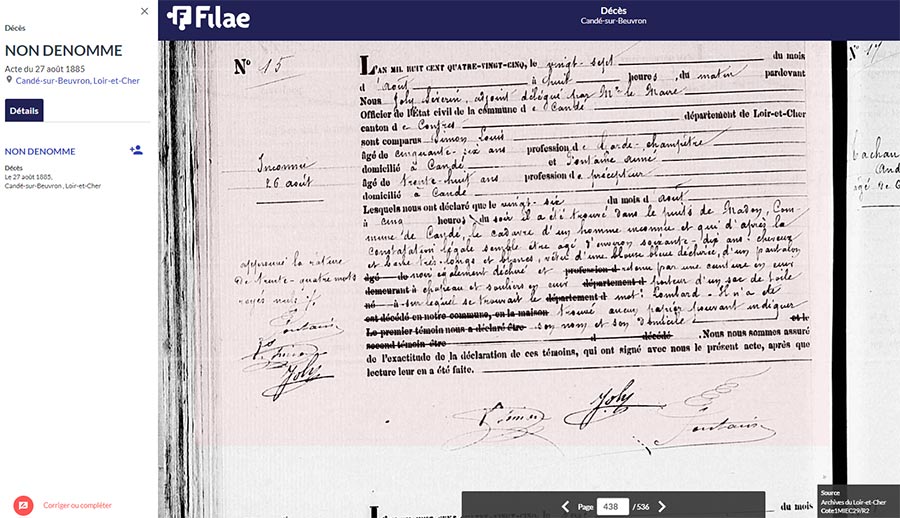 Décès
NON DENOMME
Acte du 27 août 1885
Candé-sur-Beuvron, Loir-et-Cher
Détails
NON DENOMME
Décès
Le 27 août 1885,
Candé-sur-Beuvron , Loir-et-Cher
Corriger ou compléter
Filae
Décès
Candé-sur-Beuvron
No 15
Inconnu
26 août
approuvé la rature
de trente-quatre mots
rayés nuls
Joly
L'AN MIL HUIT CENT QUATRE-VINGT-CINQ, le vingt-sept du mois
d'août à huit heures, du matin pardevant
Nous Joly Séverin, adjoint délégué par Mr le Maire
Officier de l'État civil de la commune de Candé
canton de Contres département de Loir-et-Cher
sont comparus Simon Louis
âgé de cinquante-six ans profession de Garde-champêtre
domicilié à Candé et Fontaine aimé
âgé de trente-huit ans profession de précepteur
domicilié à Candé
Lesquels nous ont déclaré que le vingt-six du mois d'août
à cinq heures du soir il a été trouvé dans le puits de Madon, Com-
mune de Candé, le cadavre d'un homme inconnu et qui d'après la
constatation légale semble être âgé d'environ soixante-dix ans cheveux
et barbe très-longs et blancs, vêtu d'une blouse bleue déchirée, d'un pantalon
âgé de noir également déchiré et profession d retenu par une ceinture en cuir
demeurant à chapeau et souliers en cuir département d porteur d'un sac de toile
né à sur lequel se trouvait le département d mot: Lombard. Il n'a été
est décédé en notre commune, en la maison trouvé aucun papier pouvant indiquer
Le premier témoin nous a déclaré être son nom et son domicile et le
second témoin être d décédé . Nous nous sommes assuré
de l'exactitude de la déclaration de ces témoins, qui ont signé avec nous le présent acte, après que
lecture leur en a été faite.
Simon Joly Fontaine
No 17
Page 438 / 536
du mois
Source
Archives du Loir-et-Cher
Cote1MIEC29/R2